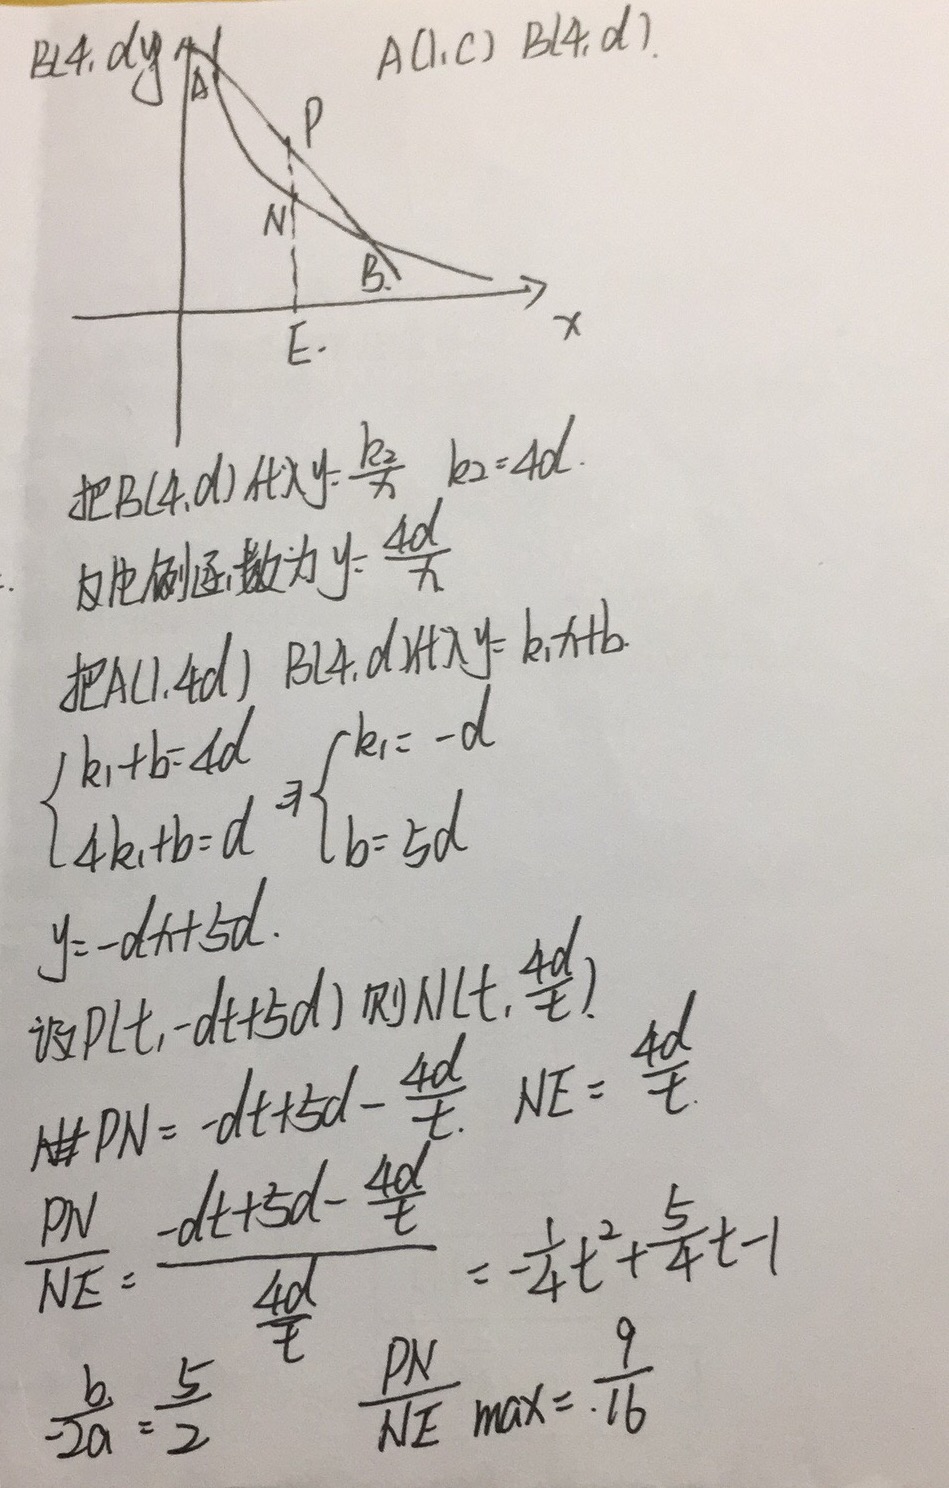 B(4,d)
y
A(1,c) B(4,d).
A
P
N
B.
E.
x
把B(4,d)代入y=k₂/x k₂=4d.
反比例函数为y=4d/x
把A(1,4d) B(4,d)代入y=k₁x+b.
{k₁+b=4d ⇒ {k₁=-d
4k₁+b=d b=5d
y=-dx+5d.
设P(t,-dt+5d)则N(t,4d/t).
PN=-dt+5d-4d/t. NE=4d/t.
PN/NE=(-dt+5d-4d/t)/(4d/t) =-1/4t²+5/4t-1
b/-2a=5/2 PN/NE max=9/16